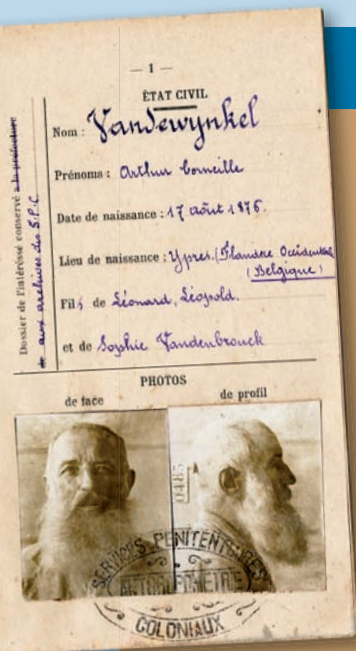 — 1 —
ÉTAT CIVIL
Nom : Vandewynkel
Prénoms : Arthur Corneille
Date de naissance : 17 août 1876.
Lieu de naissance : Ypres. (Flandre Occidentale
(Belgique)
Fils de Léonard, Léopold.
et de Sophie Vandenbrouck
Dossier de l'intéressé conservé à la préfecture
aux archives des S.P.C.
PHOTOS
de face
de profil
SERVICES PÉNITENTIAIRES
ANTHROPOMÉTRIE
COLONIAUX